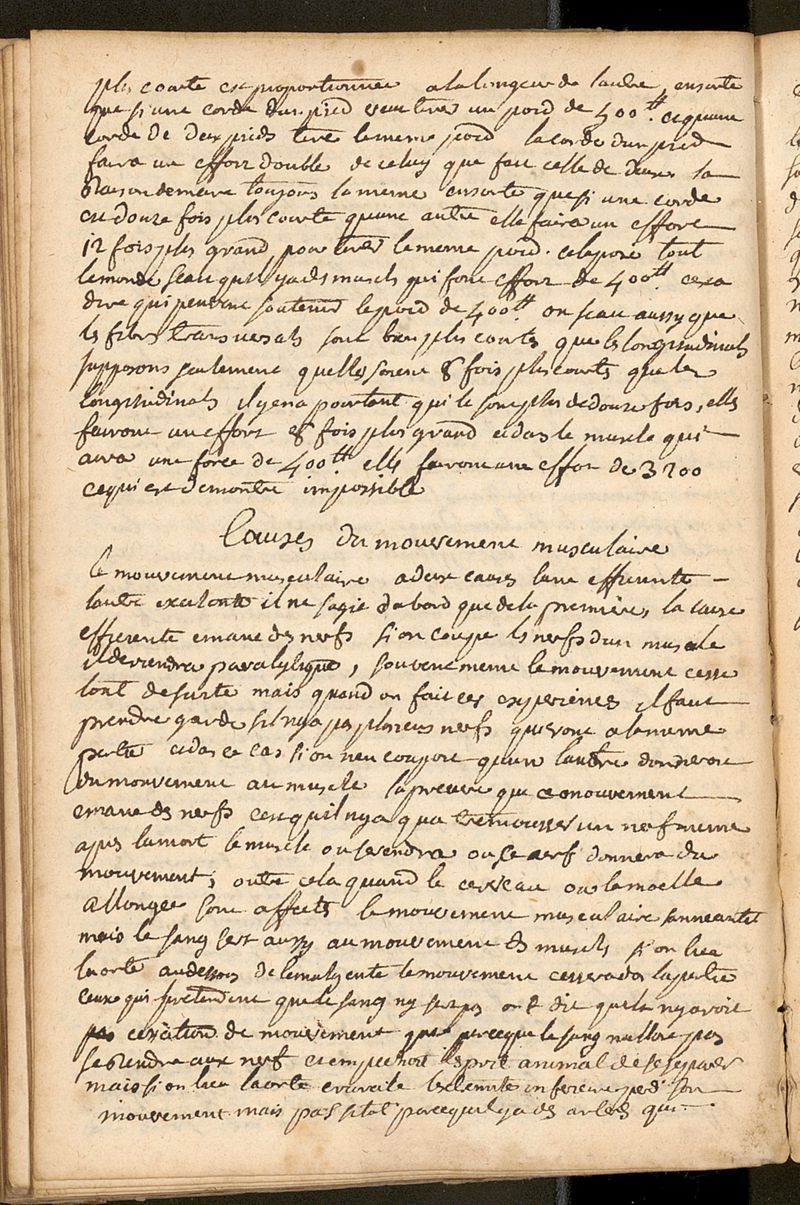 plus courte est proportionnee a la longeur de lautre, ensorte
que si une corde dun pied veut tirer un poid de 400.tt et quune
corde de deux pieds tire le meme poid la corde dun pied
faira un effort double de celuy que fait celle de deux la
Raison demeure toujours la meme ensorte que si une corde
est douze fois plus courte quune autre elle faira un effort
12 fois plus grand pour tirer le meme poid. cela pose tout
le monde scait quil y a des muscls qui font effort de 400.tt cest a
dire qui peuvent soutenir le poid de 400.tt on scait aussy que
ls fibrs transversals sont bien plus courts que ls longitudinals
supposons seulement quells soient 8 fois plus courts que les
longitudinals il y en a pourtant qui le sont plus de douze fois, ells
fairont un effort 8 fois plus grand et dans le muscle qui
aura une force de 400.tt ells fairont un effort de 3200
ce qui est demontré impossible
Causes du mouvement musculaire
le mouvement musculaire a deux causes lune efficiente
lautre il ne sagit dabord que de la premiere, la cause
efficiente emane des nerfs si on coupe ls nerfs dun muscle
il deviendra paralytique, souvent meme le mouvement cesse
tout de suite mais quand on fait ces experiences il faut
prendre garde sil ny a pas plusieurs nerfs qui vont a la meme
partie et dans ce cas si on nen coupoit quun lautre donneroit
du mouvement au muscle la preuve que ce mouvement
emane ds nerfs cest quil ny a qua tremousser un nerf meme
apres la mort le muscle ou se rendra ce nerf donnera du
mouvement; outre cela quand le cerveau ou la moelle
allongée sont affects le mouvement musculaire sanneantit
mais le sang sert aussy au mouvement ds muscls si on lie
laorte au dessous de le mouvement cessera dans la partie
ceux qui pretendent que le sang ny sert pas ont dit que la ny avoit
pas cessation de mouvement que parceque le sang nalloit pas
se rendre aux nerfs et empechoit lesprit animal de se separer
mais si on lie laorte lextremite inferieure perd son
mouvement mais pas sitot parcequil y a des arteres qui